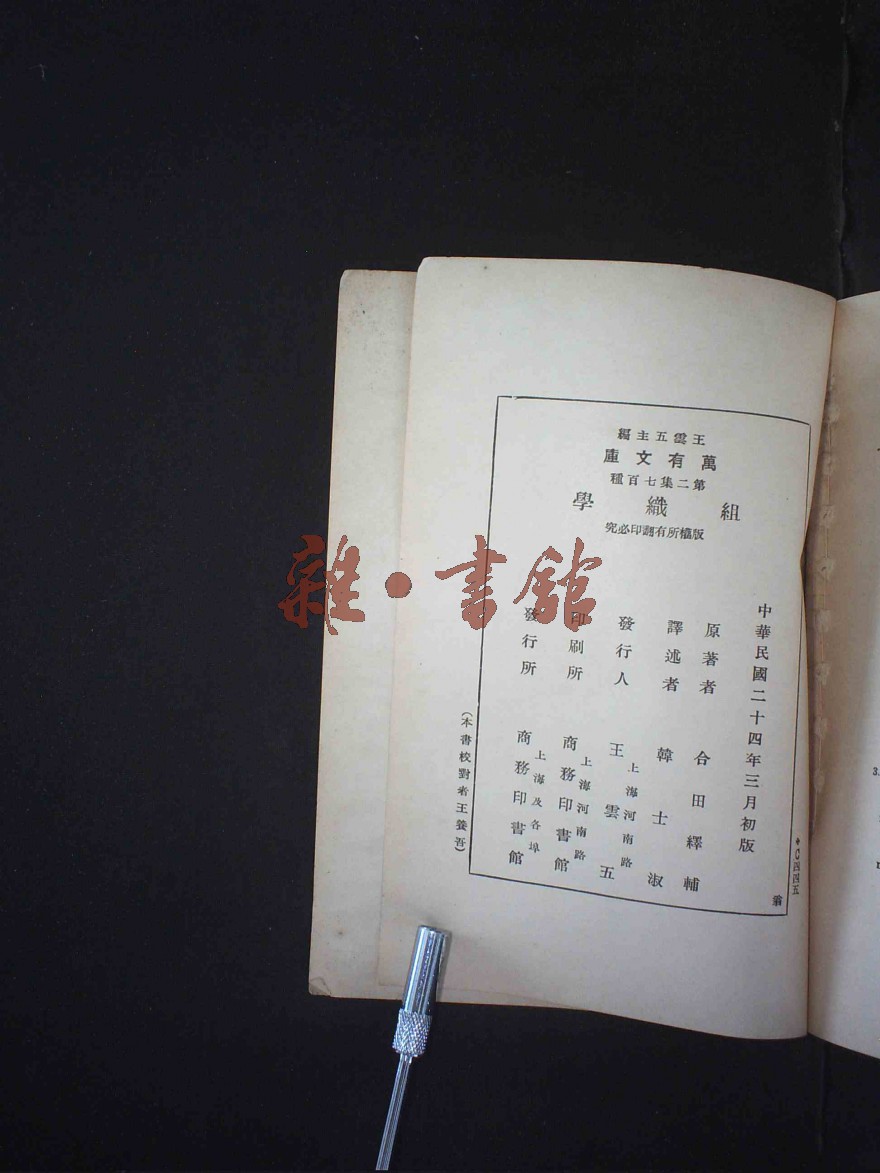 王雲五主編
萬有文庫
第二集七百種
組織學
版權所有翻印必究
中華民國二十四年三月初版
原著者 合田繹輔
譯述者 韓士淑
發行人 王雲五
上海河南路
印刷所 商務印書館
上海河南路
發行所 商務印書館
上海及各埠
(本書校對者王養吾)
翁
雜·書館